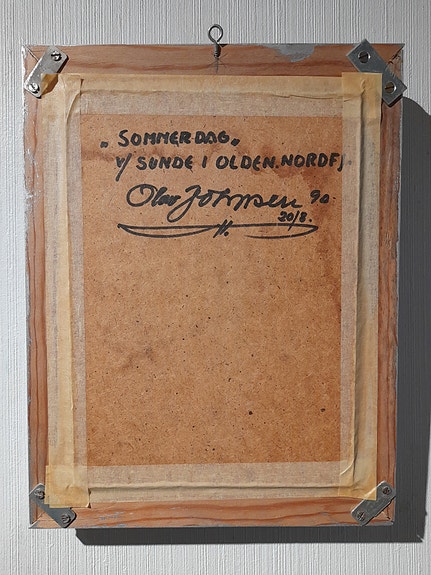 „ SOMMERDAG„
V/ SUNDE I OLDEN. NORDFJ.
Olav Johnsen 90.
20/8.